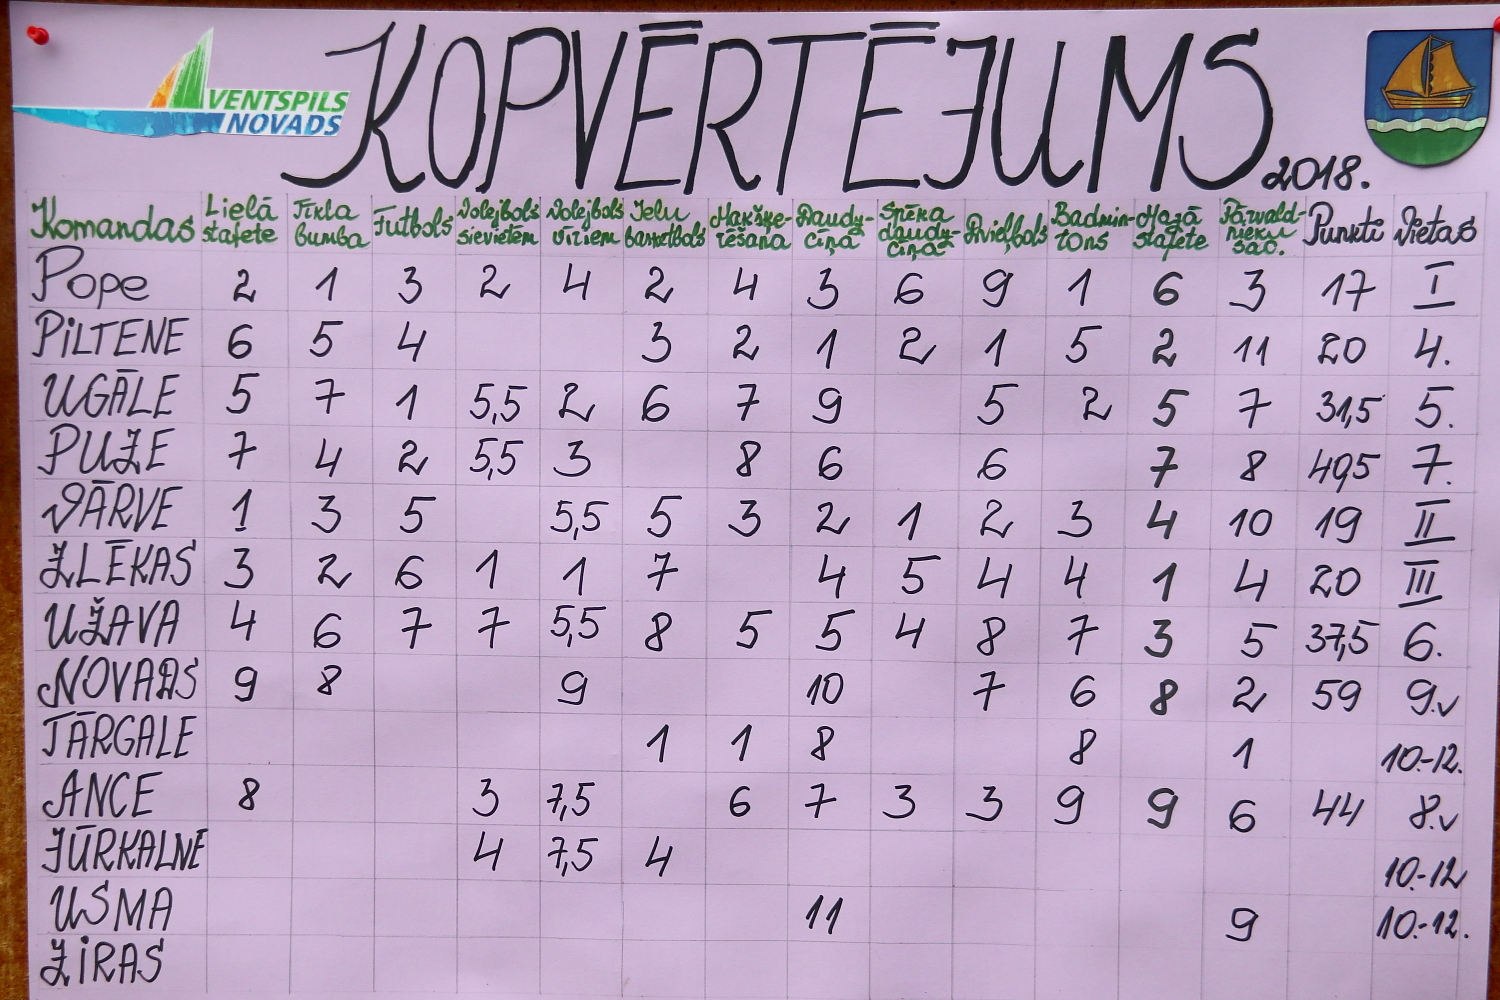 VENTSPILS
NOVADS
KOPVĒRTĒJUMS
2018.
Komandas Lielā stafete Tīkla bumba Futbols Volejbols sievietēm Volejbols vīriem Ielu basketbols Makšķerēšana Daudzcīņa Spēka daudzcīņa Dvieļbols Badmintons Mazā stafete Pārvaldnieku sac. Punkti Vietas
Pope 2 1 3 2 4 2 4 3 6 9 1 6 3 17 I
PILTENE 6 5 4 3 2 1 2 1 5 2 11 20 4.
UGĀLE 5 7 1 5,5 2 6 7 9 5 2 5 7 31,5 5.
PUZE 7 4 2 5,5 3 8 6 6 7 8 49,5 7.
VĀRVE 1 3 5 5,5 5 3 2 1 2 3 4 10 19 II
ZLĒKAS 3 2 6 1 1 7 4 5 4 4 1 4 20 III
UŽAVA 4 6 7 7 5,5 8 5 5 4 8 7 3 5 37,5 6.
NOVADS 9 8 9 10 7 6 8 2 59 9.v
TĀRGALE 1 1 8 8 1 10.-12.
ANCE 8 3 7,5 6 7 3 3 9 9 6 44 8.v
JŪRKALNE 4 7,5 4 10.-12
USMA 11 9 10.-12.
ZIRAS